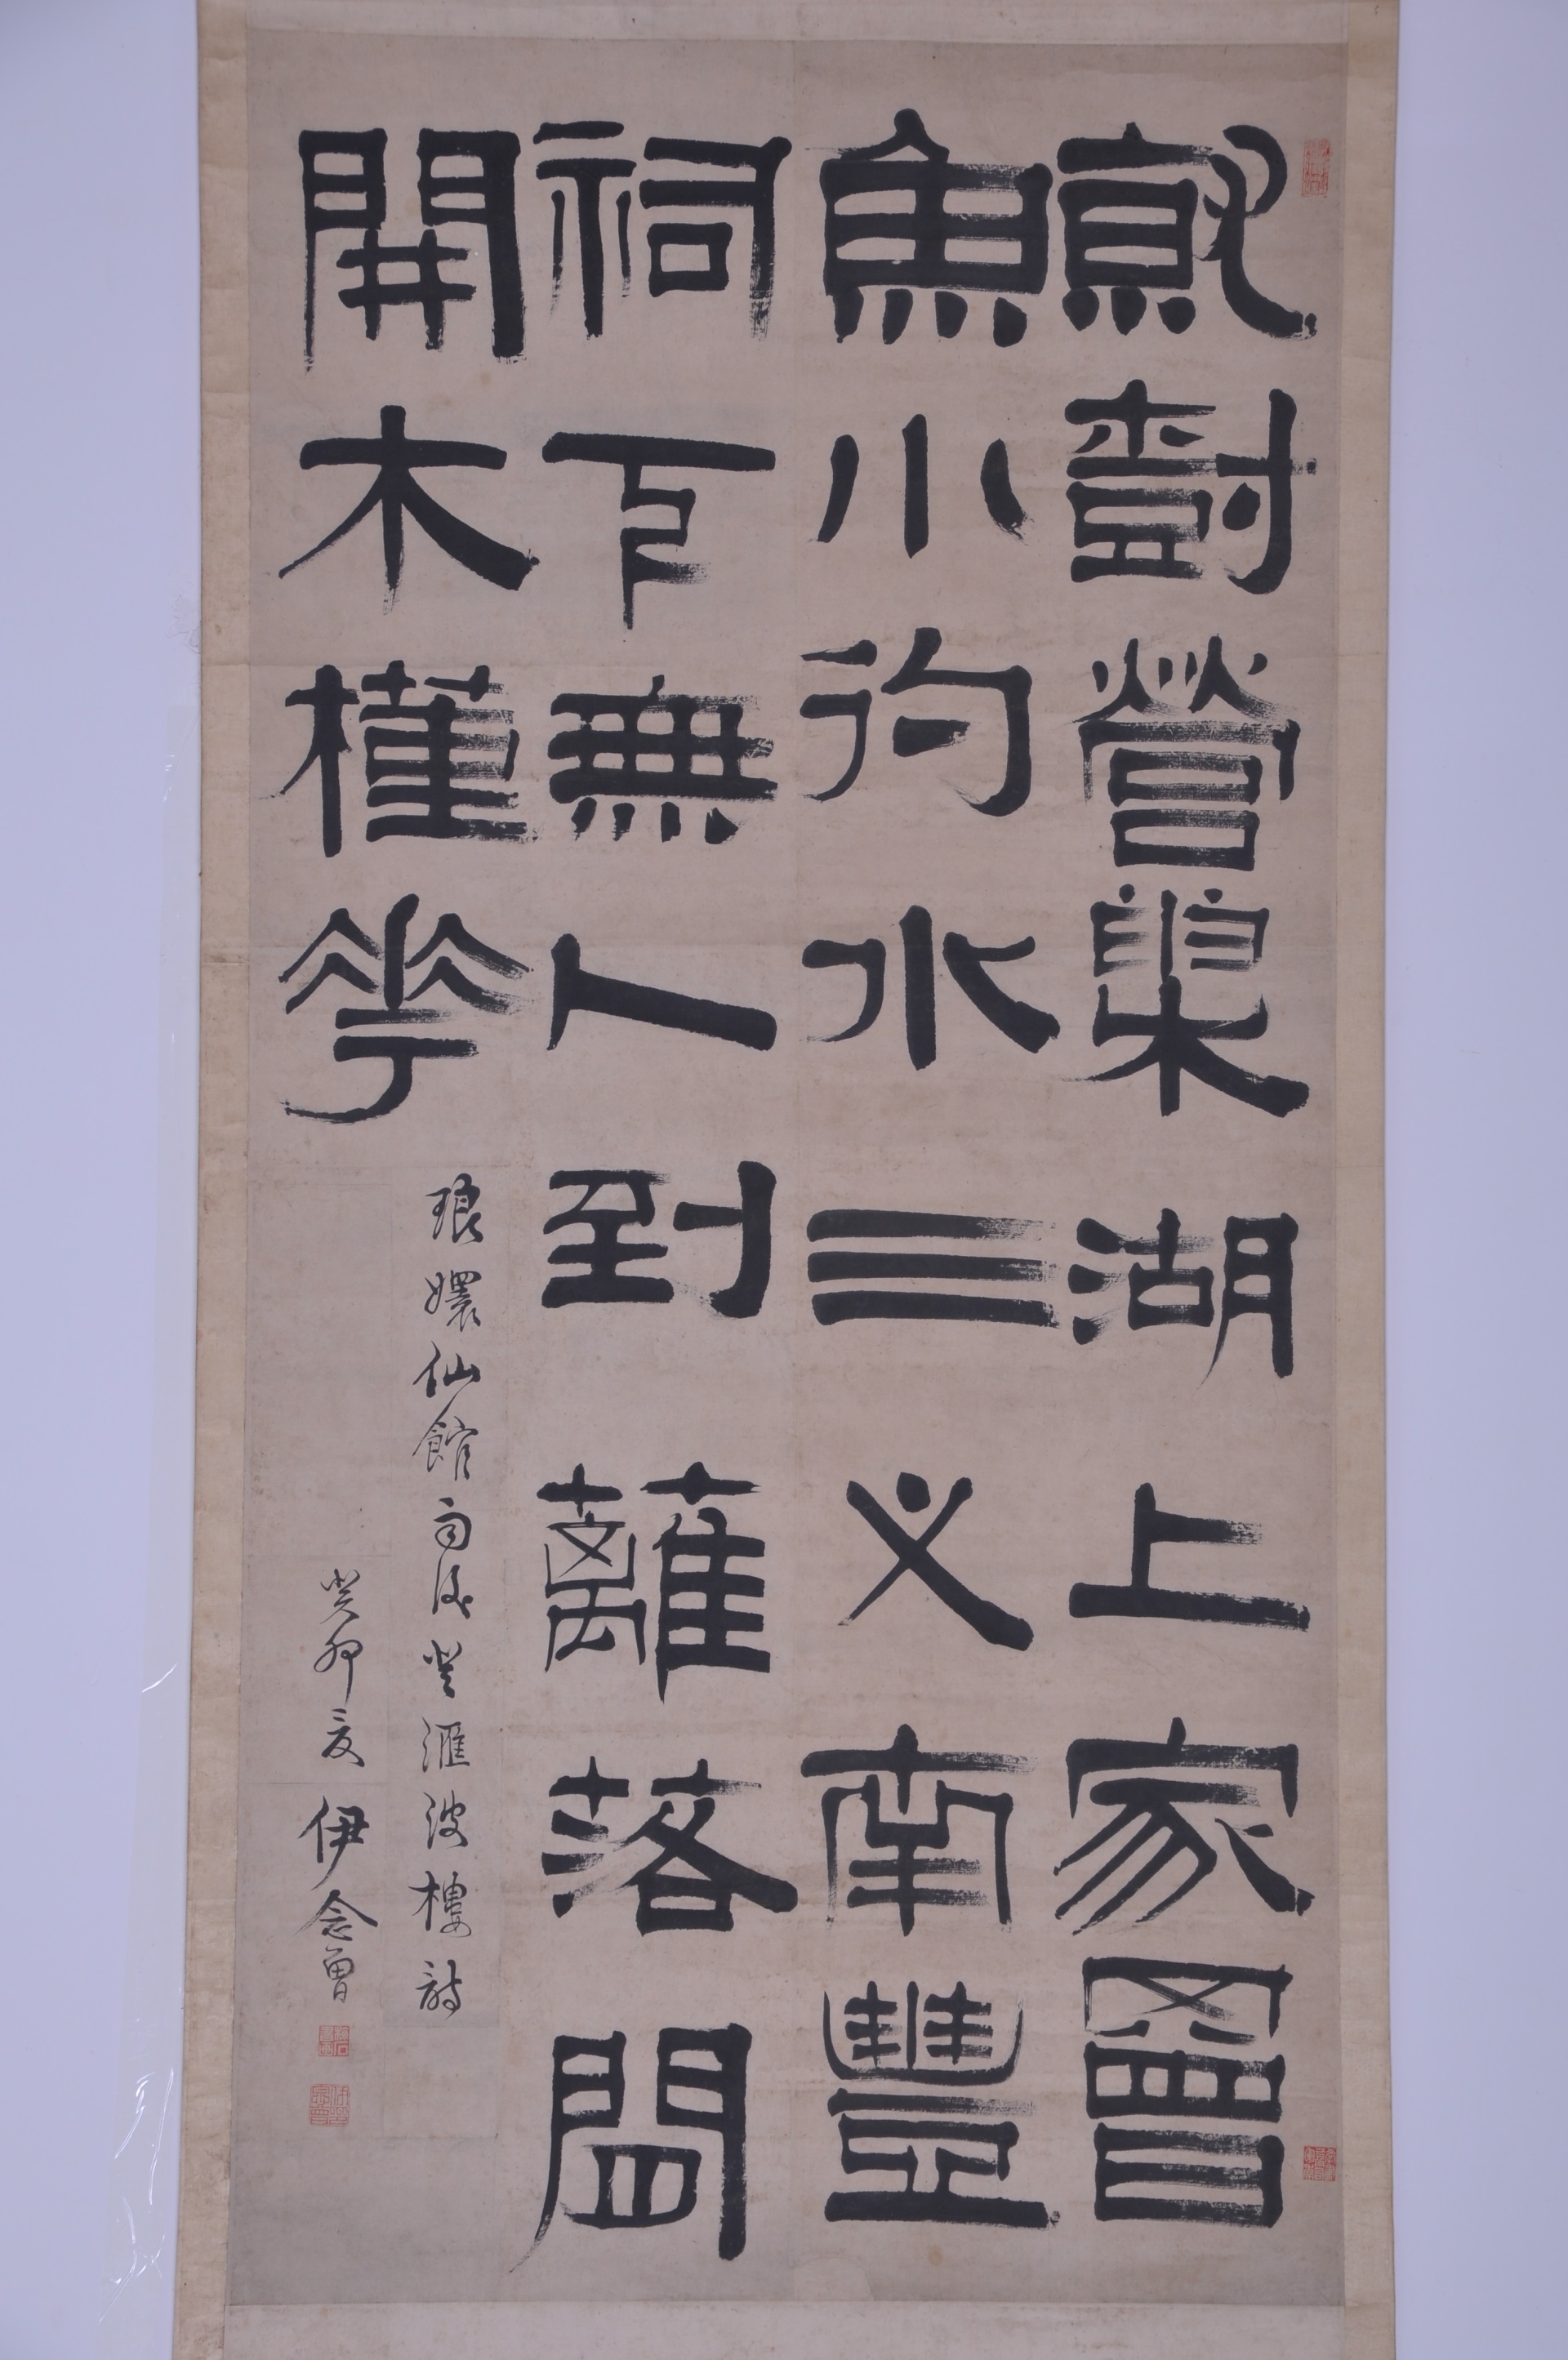 就樹營巢湖上家罾
魚小彴水三叉南豐
祠下無人到蘺落閒
開木槿花
琅嬛仙館雨後登滙波樓詩
癸卯夏伊念曾